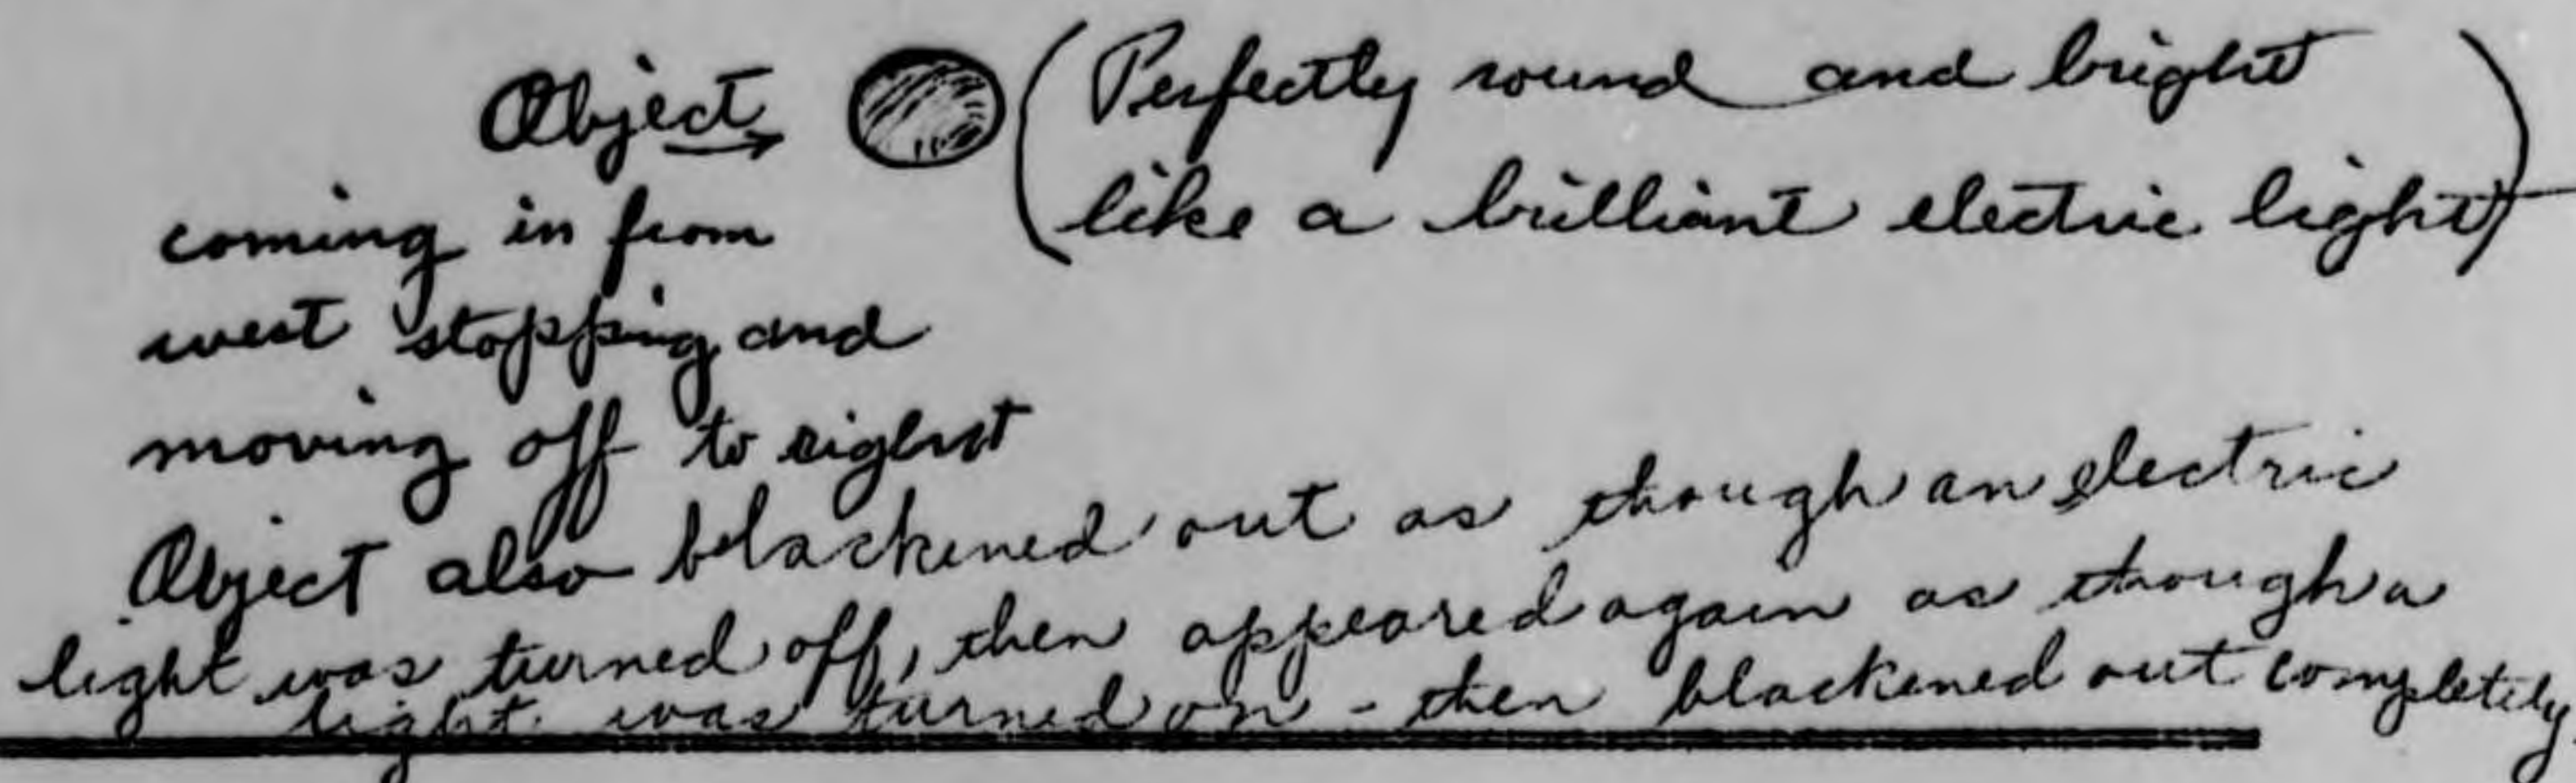 Object → (Perfectly round and bright
like a brilliant electric light)
coming in from
west stopping and
moving off to right
Object also blackened out as though an electric
light was turned off, then appeared again as though a
light was turned on - then blackened out completely